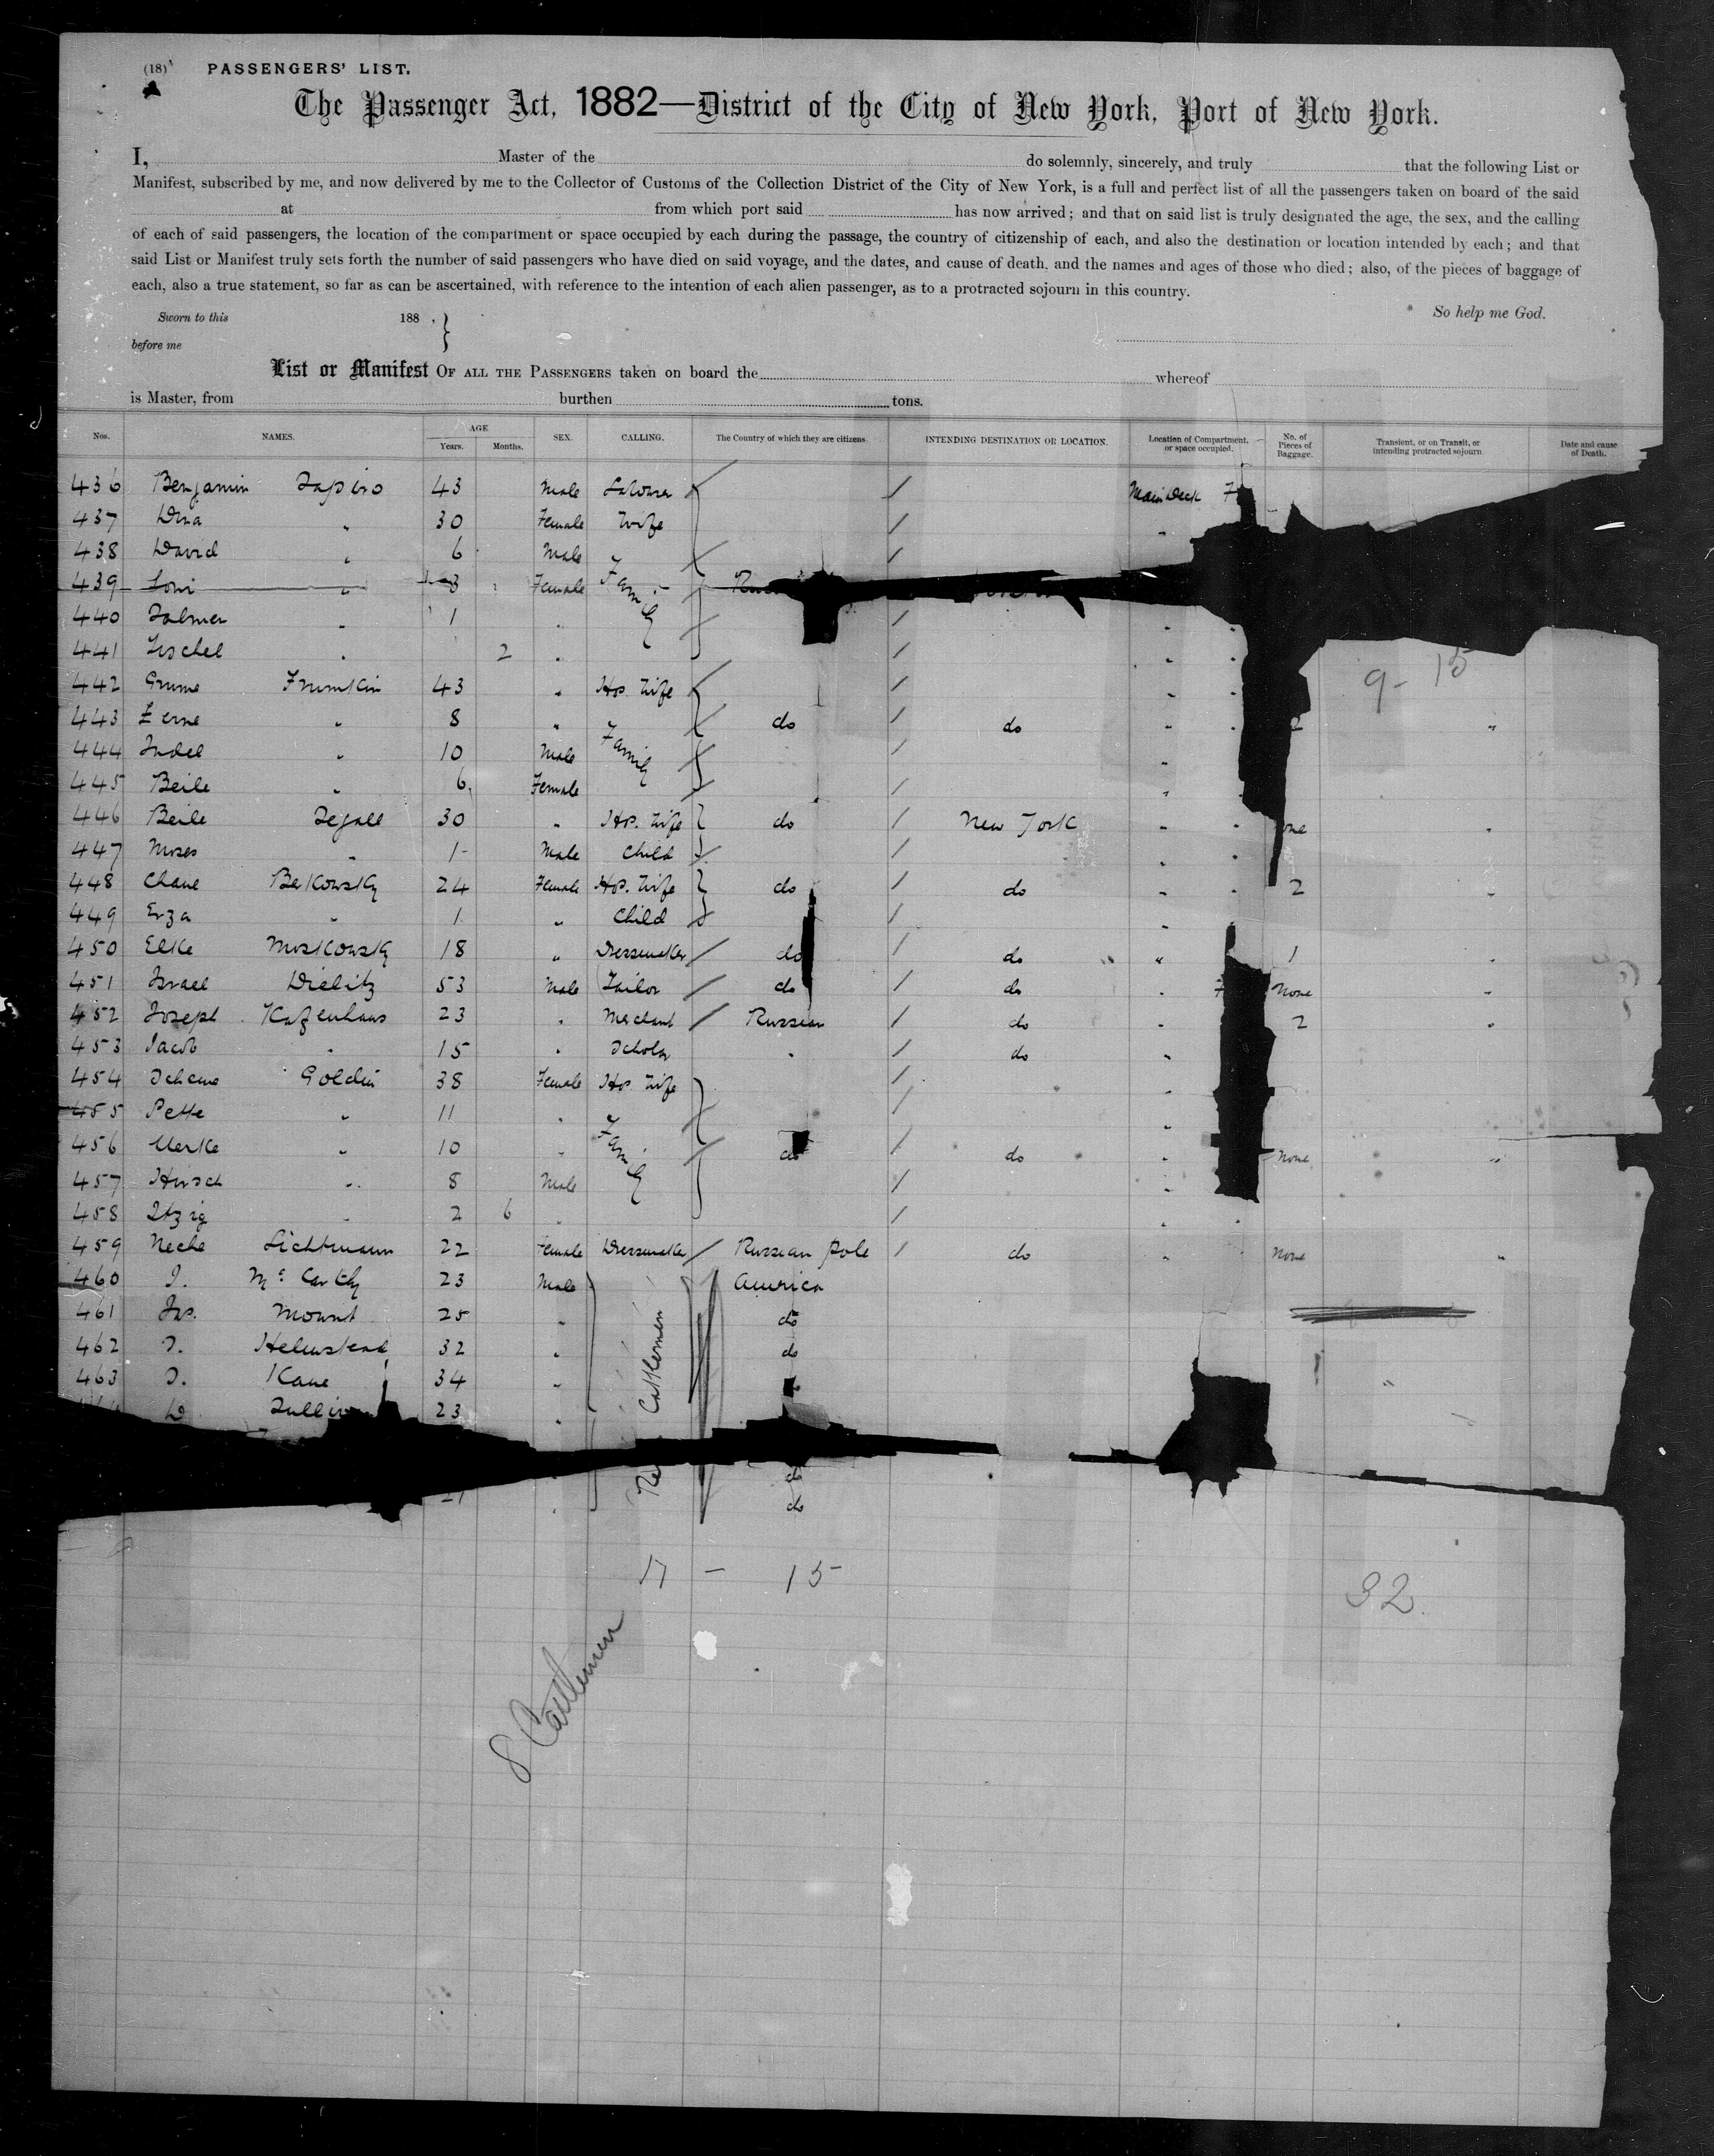 (18) PASSENGERS' LIST.
The Passenger Act, 1882—District of the City of New York, Port of New York.
I, Master of the do solemnly, sincerely, and truly that the following List or
Manifest, subscribed by me, and now delivered by me to the Collector of Customs of the Collection District of the City of New York, is a full and perfect list of all the passengers taken on board of the said
at from which port said has now arrived; and that on said list is truly designated the age, the sex, and the calling
of each of said passengers, the location of the compartment or space occupied by each during the passage, the country of citizenship of each, and also the destination or location intended by each; and that
said List or Manifest truly sets forth the number of said passengers who have died on said voyage, and the dates, and cause of death, and the names and ages of those who died; also, of the pieces of baggage of
each, also a true statement, so far as can be ascertained, with reference to the intention of each alien passenger, as to a protracted sojourn in this country.
Sworn to this 188 , } So help me God.
before me
List or Manifest OF ALL THE PASSENGERS taken on board the whereof
is Master, from burthen tons.
Nos. NAMES. AGE Years. Months. SEX. CALLING. The Country of which they are citizens. INTENDING DESTINATION OR LOCATION. Location of Compartment, or space occupied. No. of Pieces of Baggage. Transient, or on Transit, or intending protracted sojourn Date and cause of Death.
436 Benjamin Sapiro 43 Male Labourer / Main Deck
437 Dina " 30 Female Wife /
438 David " 6 Male /
439 " 3 Female Family
440 " 1 " /
441 " 2 " /
442 Grume Frumkin 43 " Hos. Wife / 9-15
443 " 8 " do / do 2 "
444 Judel " 10 Male Family /
445 Beile " 6 Female /
446 Beile Segall 30 " Hos. Wife do / New York "
447 Moses " 1 Male Child /
448 Chane Berkowsky 24 Female Hos. Wife do / do 2 "
449 Erza " 1 " Child /
450 Elke Moskowsky 18 " Dressmaker / do / do " 1 "
451 Israel Dielitz 53 Male Tailor / do / do " None "
452 Joseph Kazenhaus 23 " Merchant / Russian / do " 2 "
453 Jacob " 15 " Scholar " / do "
454 Goldin 38 Female Hos. Wife /
455 " 11 " /
456 Merke " 10 " Family do / do " None "
457 Hirsch " 8 Male /
458 Itzig " 2 6 " /
459 Neche Lichtmann 22 Female Dressmaker / Russian Pole / do " None "
460 J. McCarthy 23 Male America
461 Jos. Mount 25 " do
462 32 " do
463 Kane 34 " Cattlemen
D. Sullivan 23 "
do
21 " do
17 - 15 32
8 Cattlemen